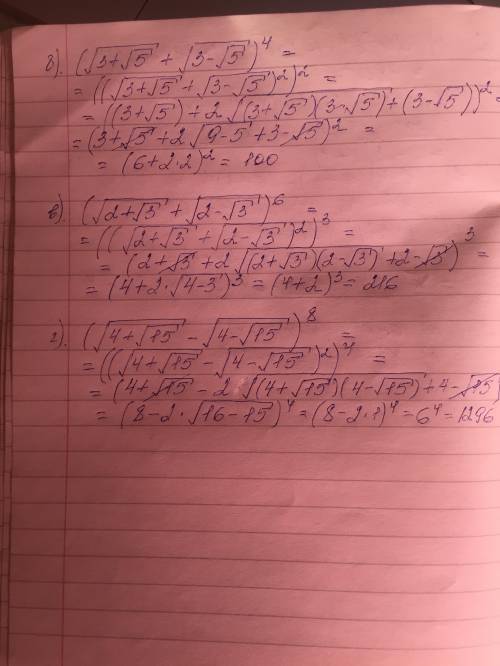 б). (√(3+√5) + √(3-√5))⁴ =
= ((√(3+√5) + √(3-√5))²)² =
= ((3+√5) + 2√((3+√5)(3-√5)) + (3-√5))² =
= (3+√5 + 2√(9-5) + 3-√5)² =
= (6+2·2)² = 100
в) (√(2+√3) + √(2-√3))⁶ =
= ((√(2+√3) + √(2-√3))²)³ =
= (2+√3 + 2√((2+√3)(2-√3)) + 2-√3)³ =
= (4+2·√(4-3))³ = (4+2)³ = 216
г). (√(4+√15) - √(4-√15))⁸ =
= ((√(4+√15) - √(4-√15))²)⁴ =
= (4+√15 - 2√((4+√15)(4-√15)) + 4-√15)
= (8-2·√(16-15))⁴ = (8-2·1)⁴ = 6⁴ = 1296